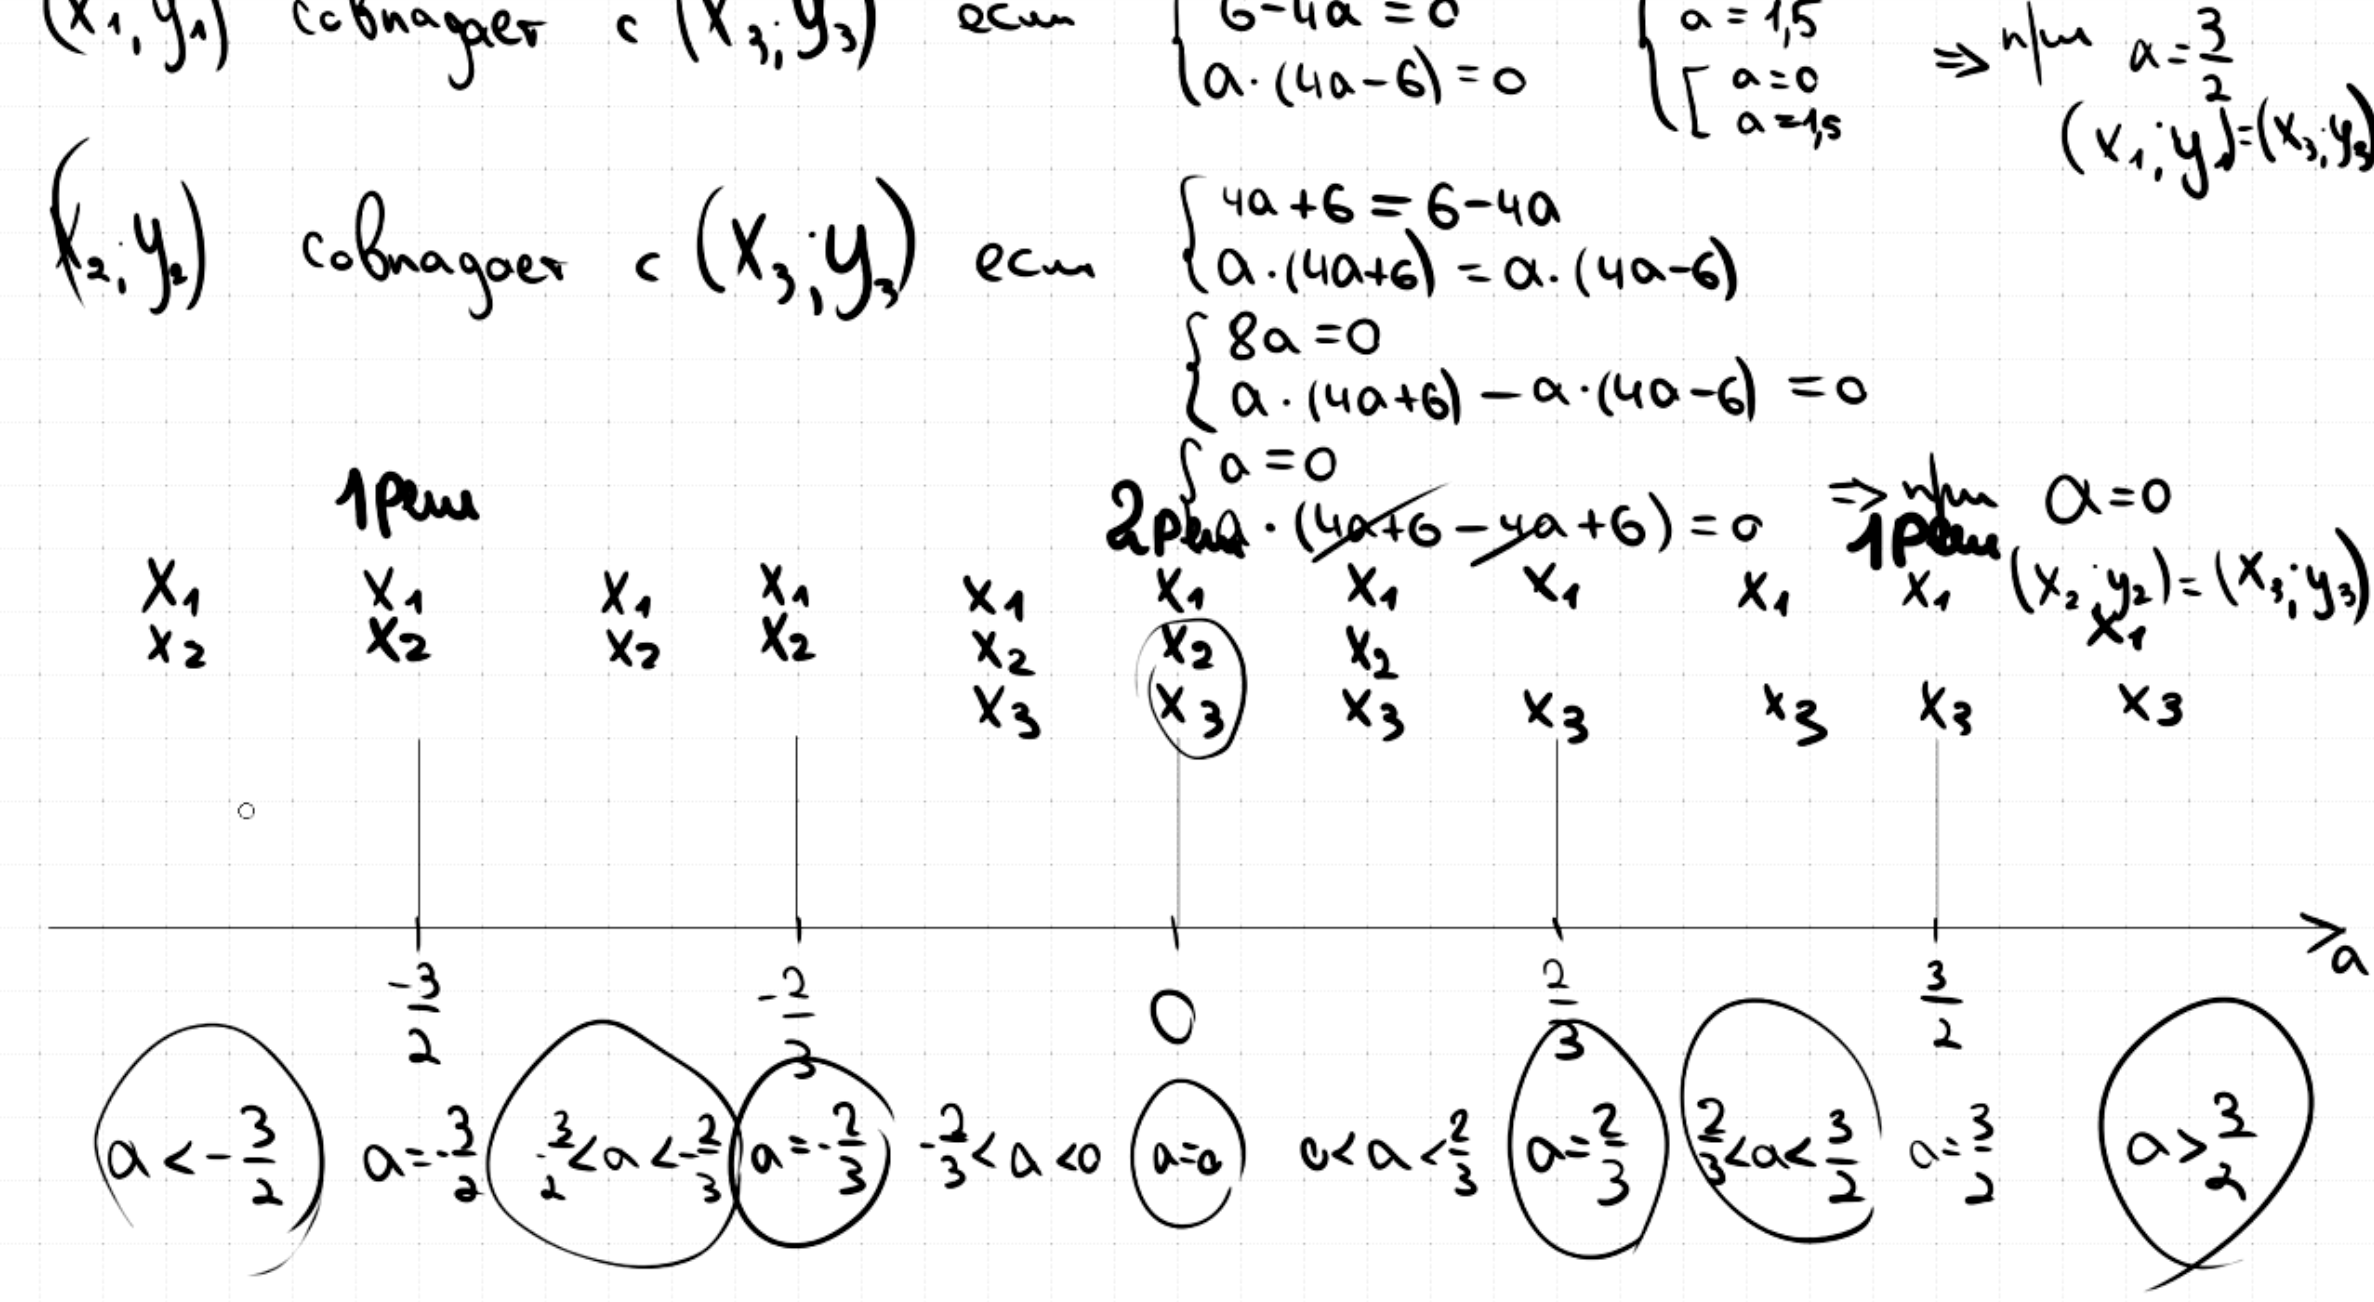 (x₁; y₁) совпадает с (x₃; y₃) если { 6-4a = 0 { a = 1,5
{ a·(4a-6) = 0 [ a=0 a=1,5 ⇒ при a = 3/2
(x₁; y₁)=(x₃; y₃)
(x₂; y₂) совпадает с (x₃; y₃) если { 4a+6 = 6-4a
{ a·(4a+6) = a·(4a-6)
{ 8a = 0
{ a·(4a+6) - a·(4a-6) = 0
{ a = 0
a·(4a+6-4a+6) = 0 ⇒ при a=0
(x₂; y₂) = (x₃; y₃)
1 реш 2 реш 1 реш
x₁ x₁ x₁ x₁ x₁ x₁ x₁ x₁ x₁ x₁ x₁
x₂ x₂ x₂ x₂ x₂ x₂ x₂
x₃ x₃ x₃ x₃ x₃ x₃ x₃
-3/2 -2/3 0 2/3 3/2 a
a < -3/2 a=-3/2 -3/2<a<-2/3 a=-2/3 -2/3<a<0 a=0 0<a<2/3 a=2/3 2/3<a<3/2 a=3/2 a>3/2